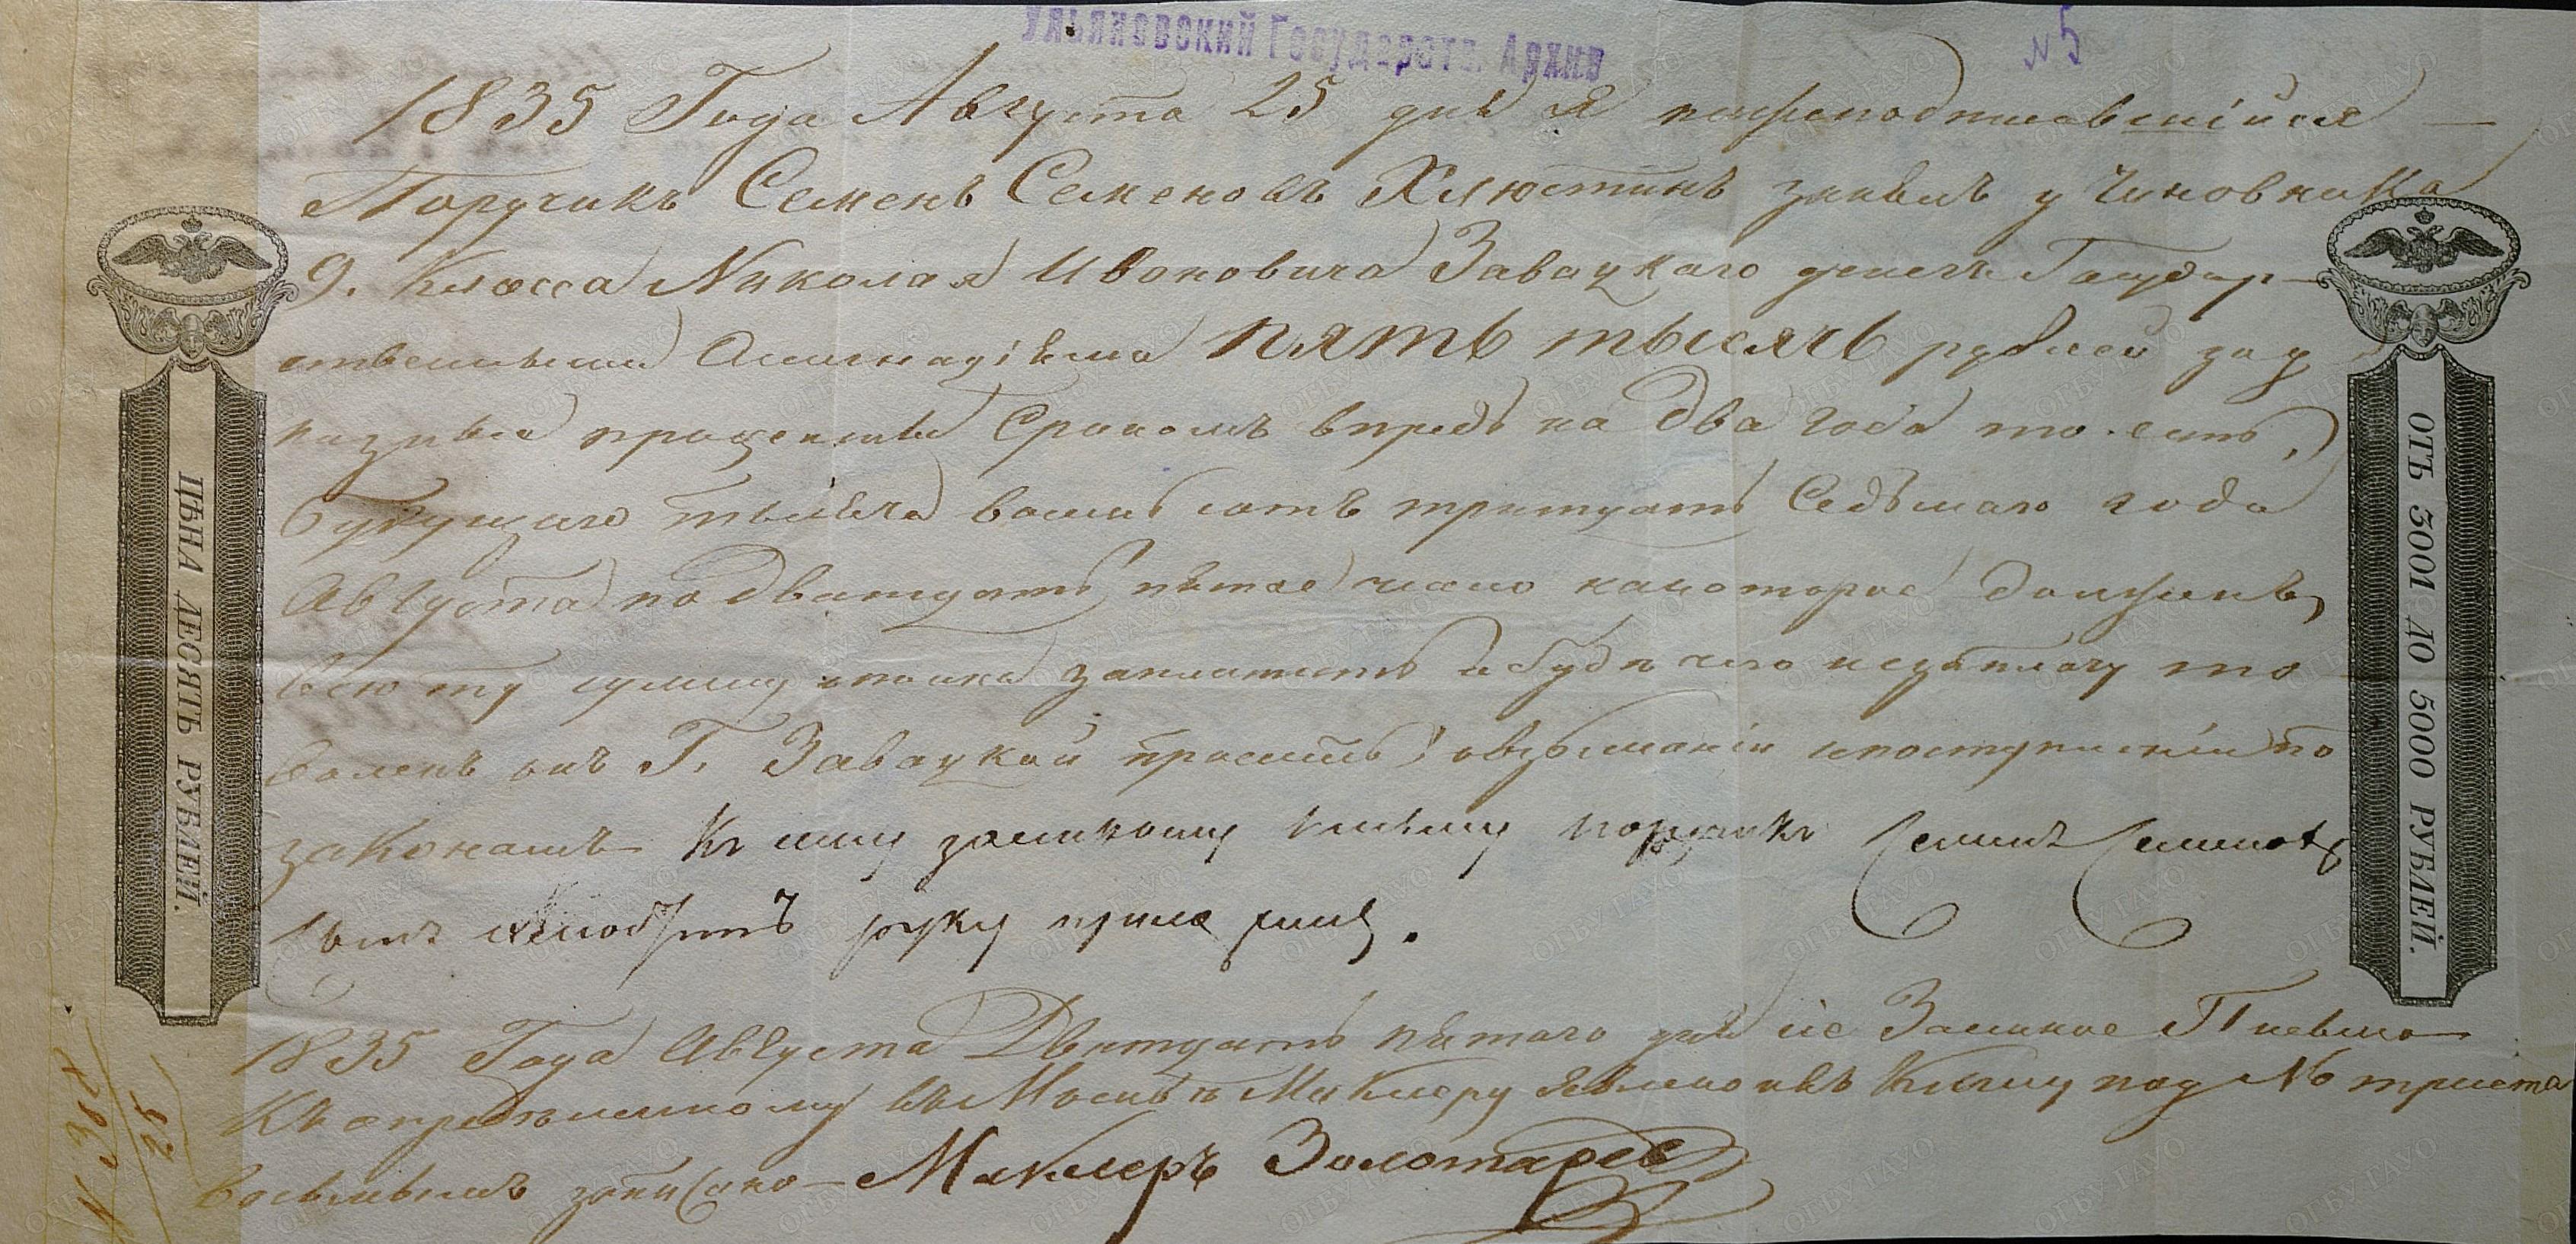 Ульяновский Государств. Архив
№ 5
1835 Года Августа 25 дня я нижеподписавшийся
Поручикъ Семенъ Семеновъ Хлюстинъ занялъ у Чиновника
9. Класса Николая Ивановича Завацкаго денегъ Государ-
ственными Ассигнаціями пять тысячь рублей за у
казные проценты Срокомъ впредь на два года то есть,
будущаго тысяча восемь сотъ тритцать Седьмаго года
Августа по дватцать пятое число на которое долженъ,
всю ту сумму сполна заплатить а буде чего незаплачу то
воленъ онъ Г. Завацкой просить о взысканіи и поступленіи по
законамъ Къ сему заемному письму порутчикъ Семенъ Семеновъ
сынъ руку приложилъ.
1835 Года Августа Дватцать пятаго дня сіе Заемное Письмо
Къ определенному въ Маклеру явлено и въ Книгу под № триста
восьмымъ записано - Маклеръ Золотарев
ЦѢНА ДЕСЯТЬ РУБЛЕЙ.
ОТЪ 3001 ДО 5000 РУБЛЕЙ.
N 308
25